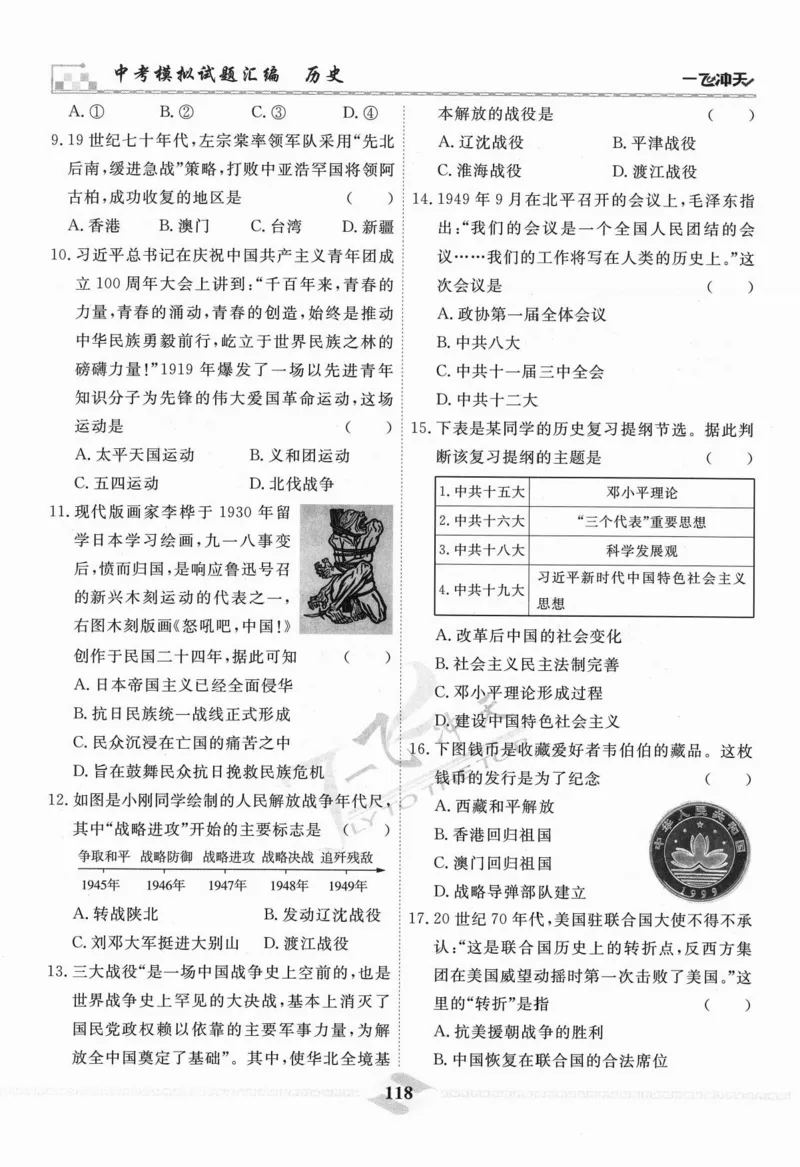 中考模拟试题汇编 历史
一飞冲天
A.① B.② C.③ D.④
9.19世纪七十年代,左宗棠率领军队采用“先北
后南,缓进急战”策略,打败中亚浩罕国将领阿
古柏,成功收复的地区是 ( )
A.香港 B.澳门 C.台湾 D.新疆
10.习近平总书记在庆祝中国共产主义青年团成
立100周年大会上讲到:“千百年来,青春的
力量,青春的涌动,青春的创造,始终是推动
中华民族勇毅前行,屹立于世界民族之林的
磅礴力量!”1919年爆发了一场以先进青年
知识分子为先锋的伟大爱国革命运动,这场
运动是 ( )
A.太平天国运动 B.义和团运动
C.五四运动 D.北伐战争
11.现代版画家李桦于1930年留
学日本学习绘画,九一八事变
后,愤而归国,是响应鲁迅号召
的新兴木刻运动的代表之一,
右图木刻版画《怒吼吧,中国!》
创作于民国二十四年,据此可知 ( )
A.日本帝国主义已经全面侵华
B.抗日民族统一战线正式形成
C.民众沉浸在亡国的痛苦之中
D.旨在鼓舞民众抗日挽救民族危机
12.如图是小刚同学绘制的人民解放战争年代尺,
其中“战略进攻”开始的主要标志是 ( )
争取和平 战略防御 战略进攻 战略决战 追歼残敌
1945年 1946年 1947年 1948年 1949年
A.转战陕北 B.发动辽沈战役
C.刘邓大军挺进大别山 D.渡江战役
13.三大战役“是一场中国战争史上空前的,也是
世界战争史上罕见的大决战,基本上消灭了
国民党政权赖以依靠的主要军事力量,为解
放全中国奠定了基础”。其中,使华北全境基
本解放的战役是 ( )
A.辽沈战役 B.平津战役
C.淮海战役 D.渡江战役
14.1949年9月在北平召开的会议上,毛泽东指
出:“我们的会议是一个全国人民团结的会
议……我们的工作将写在人类的历史上。”这
次会议是 ( )
A.政协第一届全体会议
B.中共八大
C.中共十一届三中全会
D.中共十二大
15.下表是某同学的历史复习提纲节选。据此判
断该复习提纲的主题是 ( )
1.中共十五大 邓小平理论
2.中共十六大 “三个代表”重要思想
3.中共十八大 科学发展观
4.中共十九大 习近平新时代中国特色社会主义
思想
A.改革后中国的社会变化
B.社会主义民主法制完善
C.邓小平理论形成过程
D.建设中国特色社会主义
16.下图钱币是收藏爱好者韦伯伯的藏品。这枚
钱币的发行是为了纪念 ( )
A.西藏和平解放
B.香港回归祖国
C.澳门回归祖国
D.战略导弹部队建立
中华人民共和国
1999
17.20世纪70年代,美国驻联合国大使不得不承
认:“这是联合国历史上的转折点,反西方集
团在美国威望动摇时第一次击败了美国。”这
里的“转折”是指 ( )
A.抗美援朝战争的胜利
B.中国恢复在联合国的合法席位
一飞冲天
FLY TO THE TOP
118